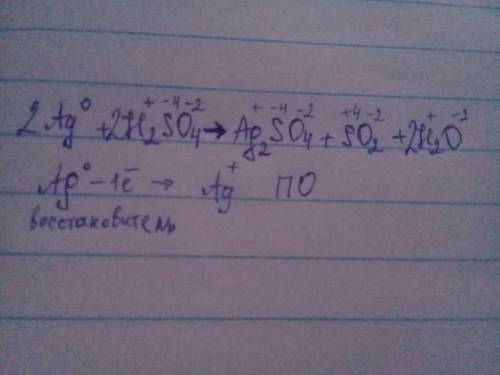 2Ag⁰ + 2H₂⁺S⁻⁴O₄⁻² → Ag₂⁺S⁻⁴O₄⁻² + S⁺⁴O₂⁻² + 2H₂⁺O⁻²
Ag⁰ - 1ē → Ag⁺ ПО
восстановитель